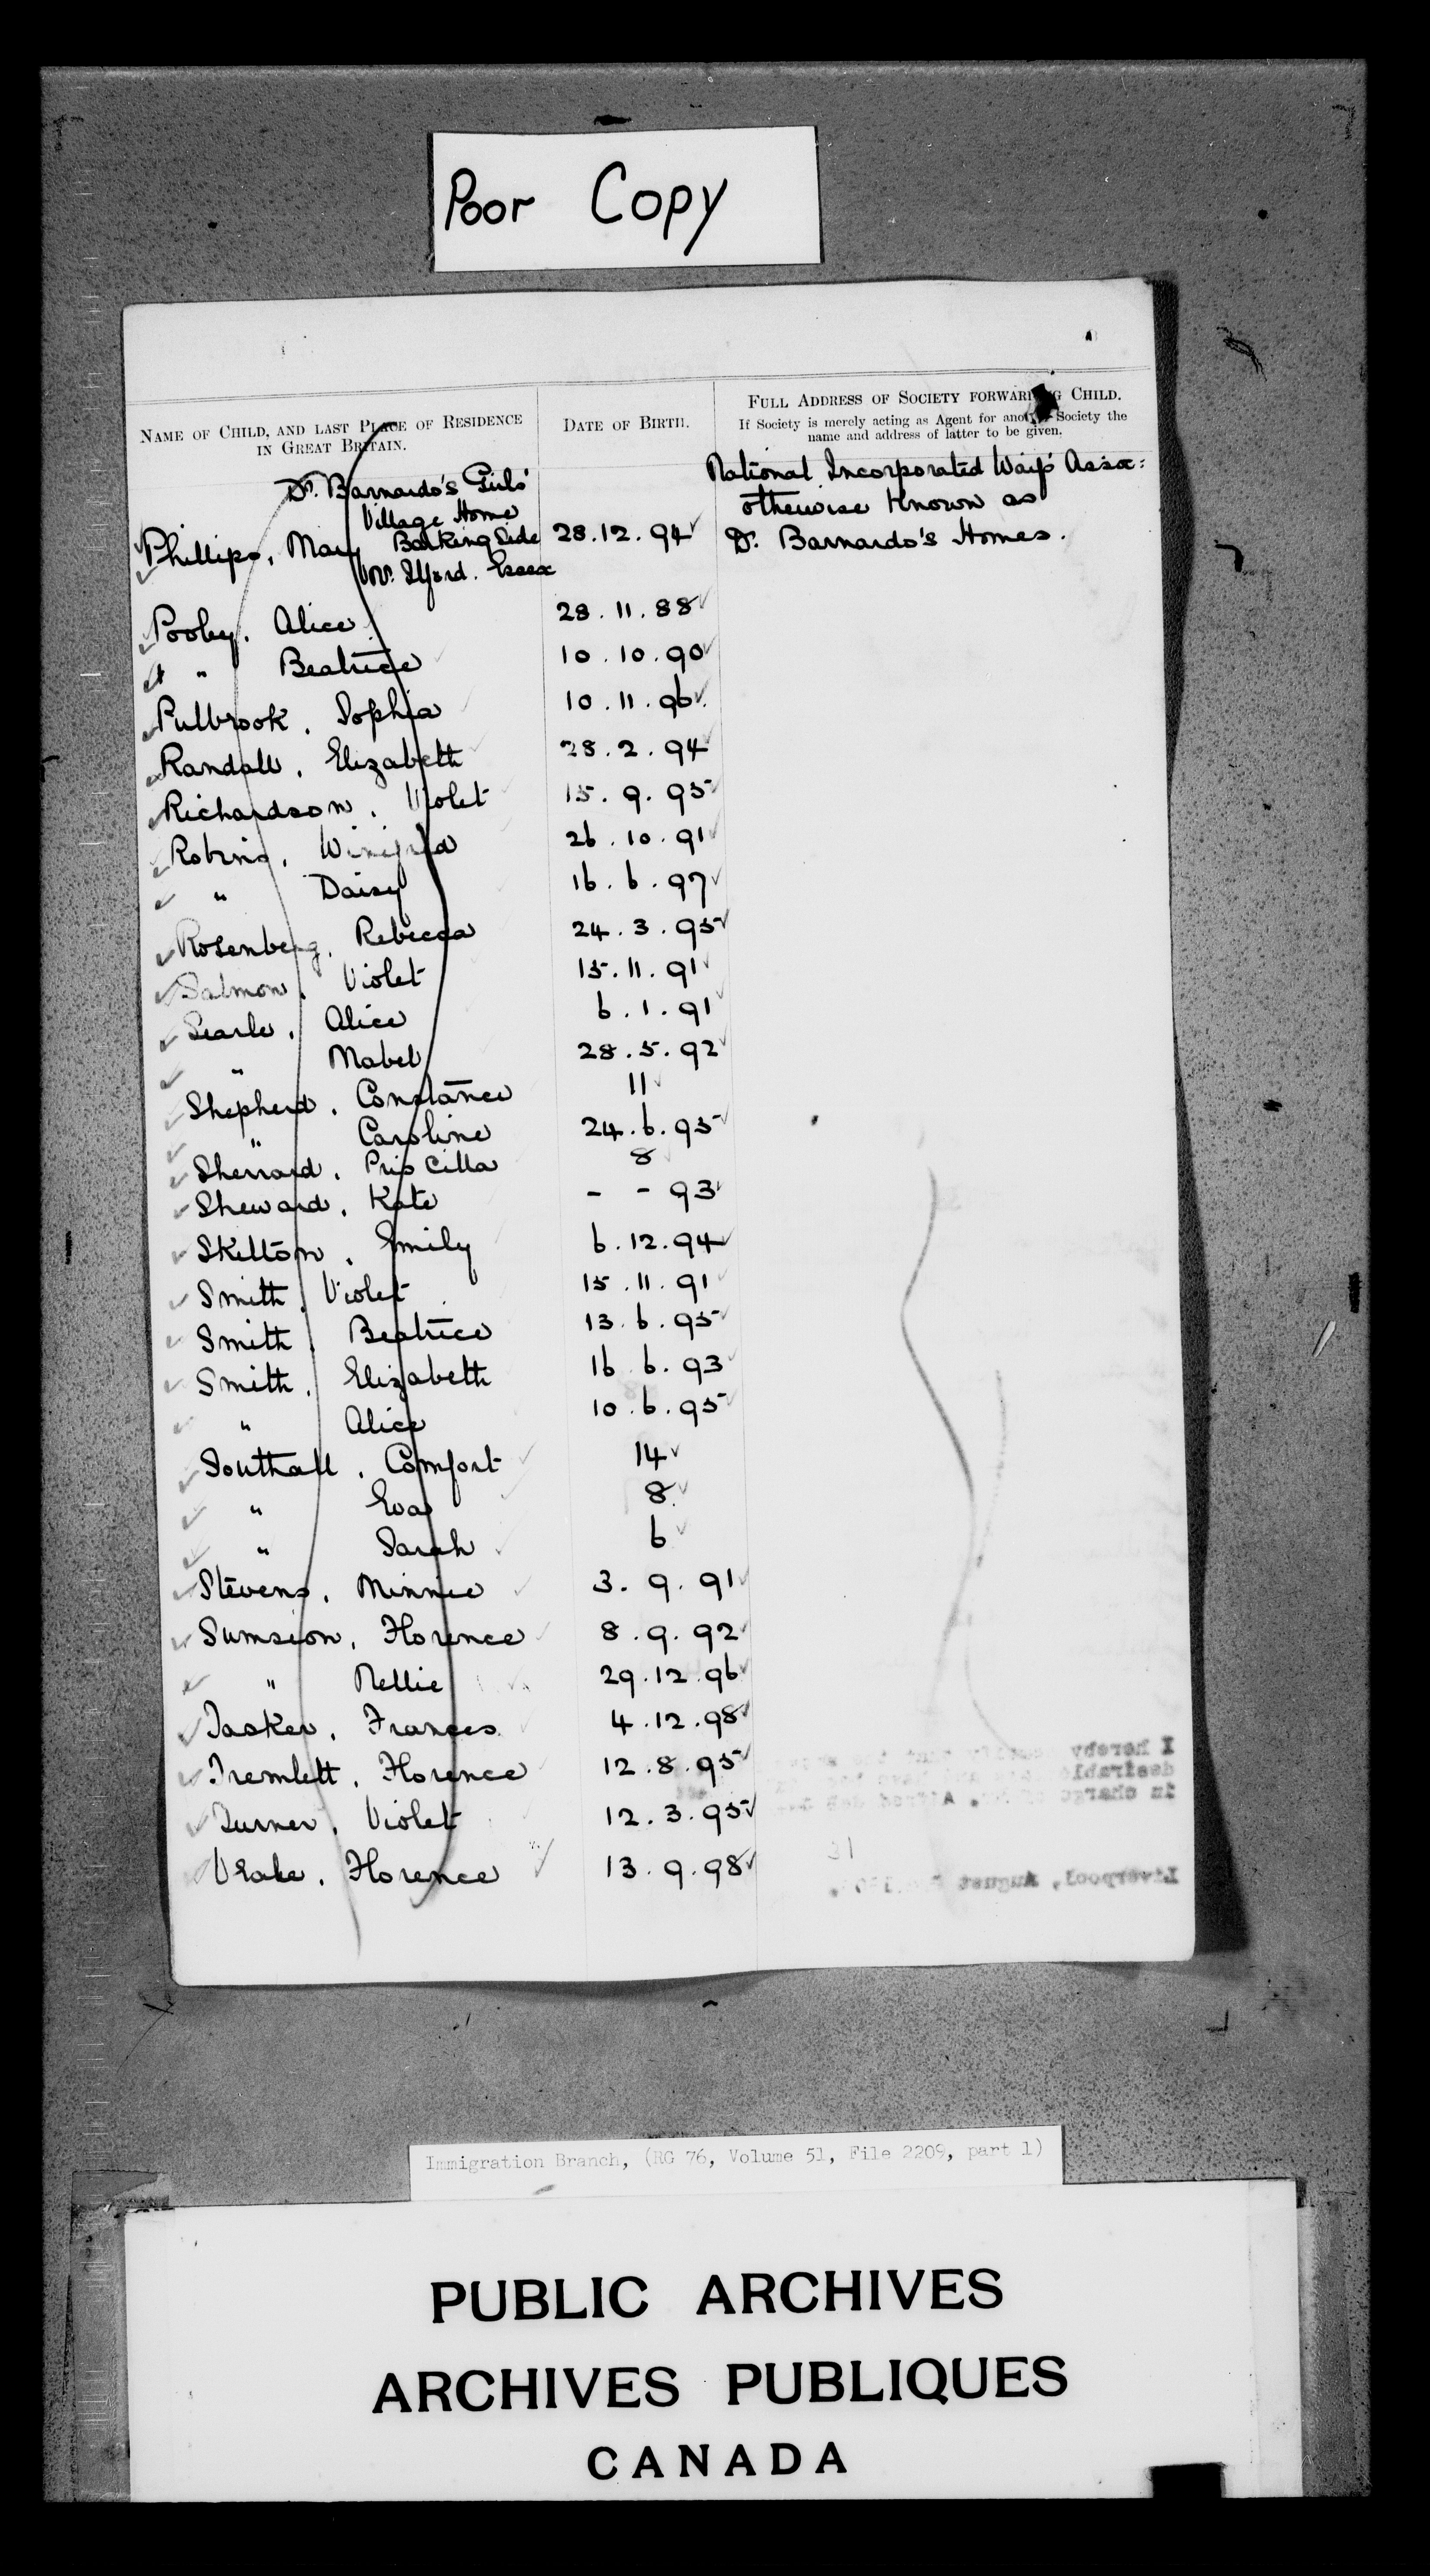 Poor Copy
NAME OF CHILD, AND LAST PLACE OF RESIDENCE
IN GREAT BRITAIN.
DATE OF BIRTH.
FULL ADDRESS OF SOCIETY FORWARDING CHILD.
If Society is merely acting as Agent for another Society the
name and address of latter to be given.
Dr. Barnardo's Girls'
Village Home
National Incorporated Waifs' Assoc:
otherwise Known as
Dr. Barnardo's Homes.
Phillips, Mary Barking Side 28.12.94
Nr. Ilford. Essex
Pooley. Alice 28.11.88
" Beatrice 10.10.90
Pulbrook. Sophia 10.11.96
Randall. Elizabeth 28.2.94
Richardson. Violet 15.9.95
Robins. Winifred 26.10.91
" Daisy 16.6.97
Rosenberg. Rebecca 24.3.95
Salmon. Violet 15.11.91
Searle. Alice 6.1.91
" Mabel 28.5.92
Shepherd. Constance 11
" Caroline 24.6.95
Sherrard. Priscilla 8
Sheward. Kate - - 93
Skelton. Emily 6.12.94
Smith. Violet 15.11.91
Smith. Beatrice 13.6.95
Smith. Elizabeth 16.6.93
" Alice 10.6.95
Southall. Comfort 14
" Eva 8
" Sarah 6
Stevens. Minnie 3.9.91
Sumsion. Florence 8.9.92
" Nellie 29.12.96
Tasker. Frances. 4.12.98
Tremlett. Florence 12.8.95
Turner. Violet 12.3.95
Florence 13.9.98
I hereby
desirable
in charge Alfred
Liverpool, August
Immigration Branch, (RG 76, Volume 51, File 2209, part 1)
PUBLIC ARCHIVES
ARCHIVES PUBLIQUES
CANADA